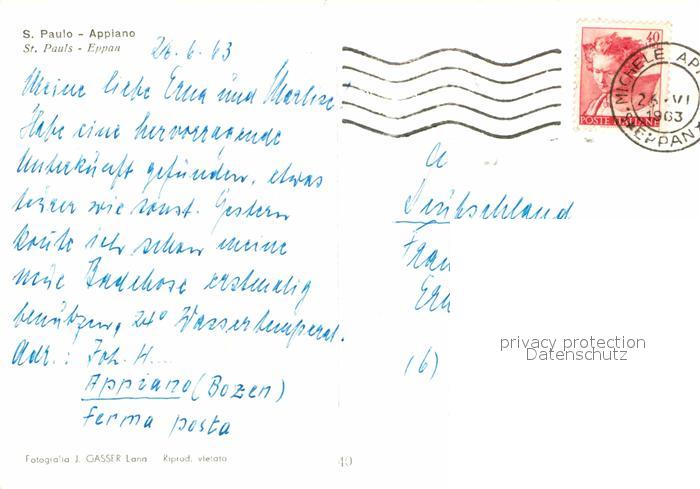 S. Paulo - Appiano
St. Pauls - Eppan
26.6.63
Meine liebe Erna und Marlise.
Habe eine hervorragende
Unterkunft gefunden, etwas
teurer wie sonst. Gestern
konnte ich schon meine
neue Badehose erstmalig
benützen, 24° Wassertemperat.
Adr.: Joh. H....
Appiano (Bozen)
Ferma posta
Fotografia J. GASSER Lana Riprod. vietata
40
40
POSTE ITALIANE
S. MICHELE AP
26.VI
1963
(EPPAN)
Deutschland
Frau
Ern
(16)
privacy protection
Datenschutz